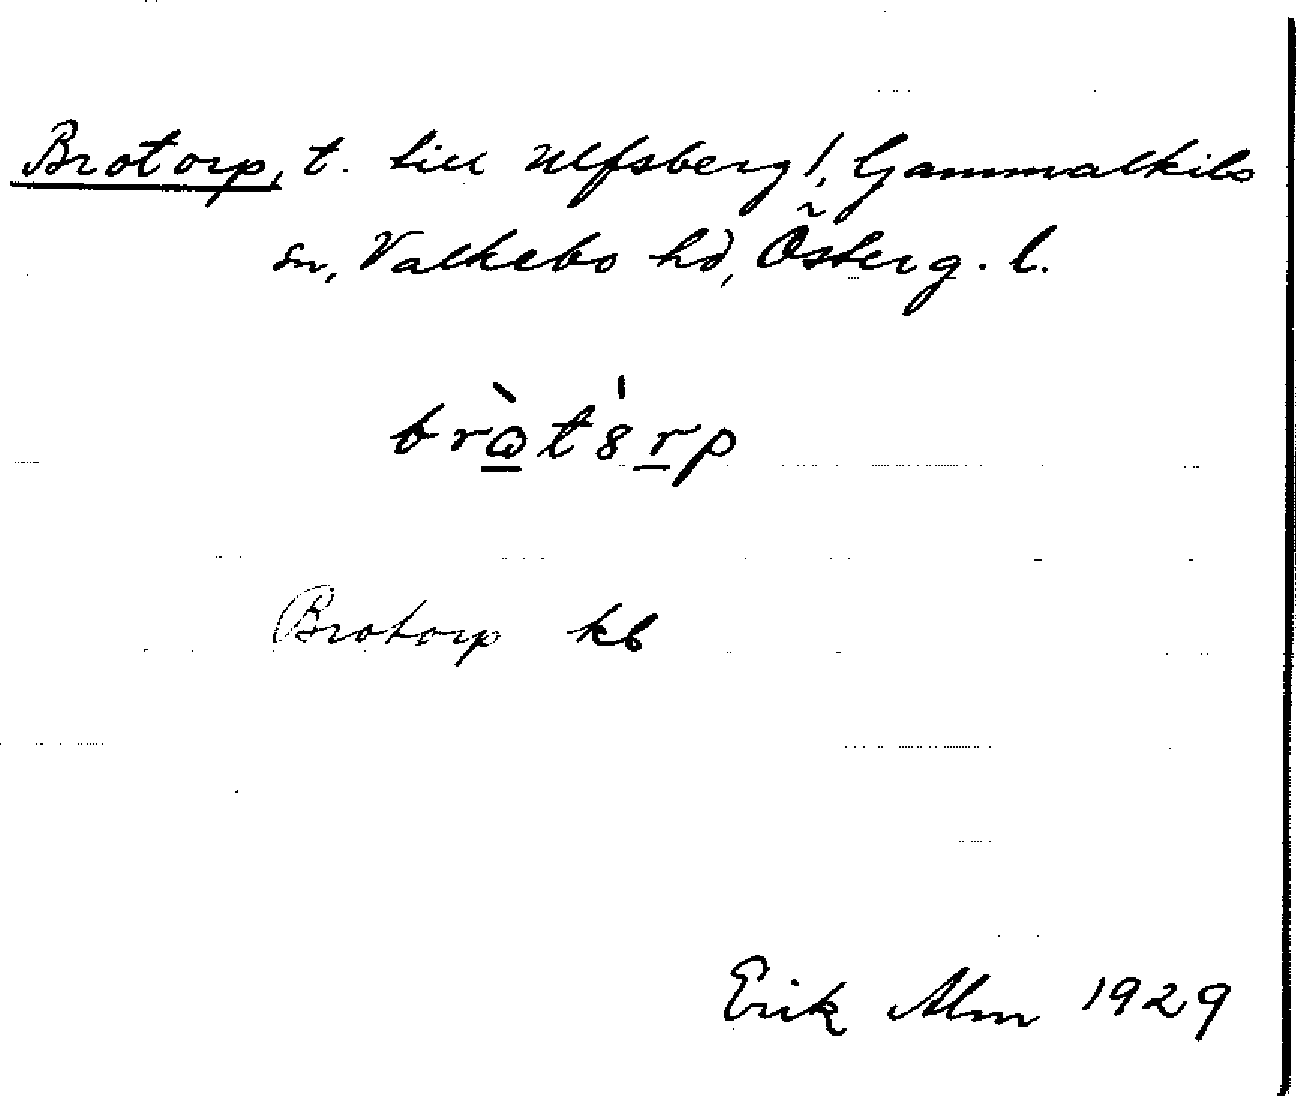 Brotorp, t. till Ulfsberg!, Gammalkils
sn, Valkebo hd, Österg. l.
Brotorp kb
Erik Alm 1929